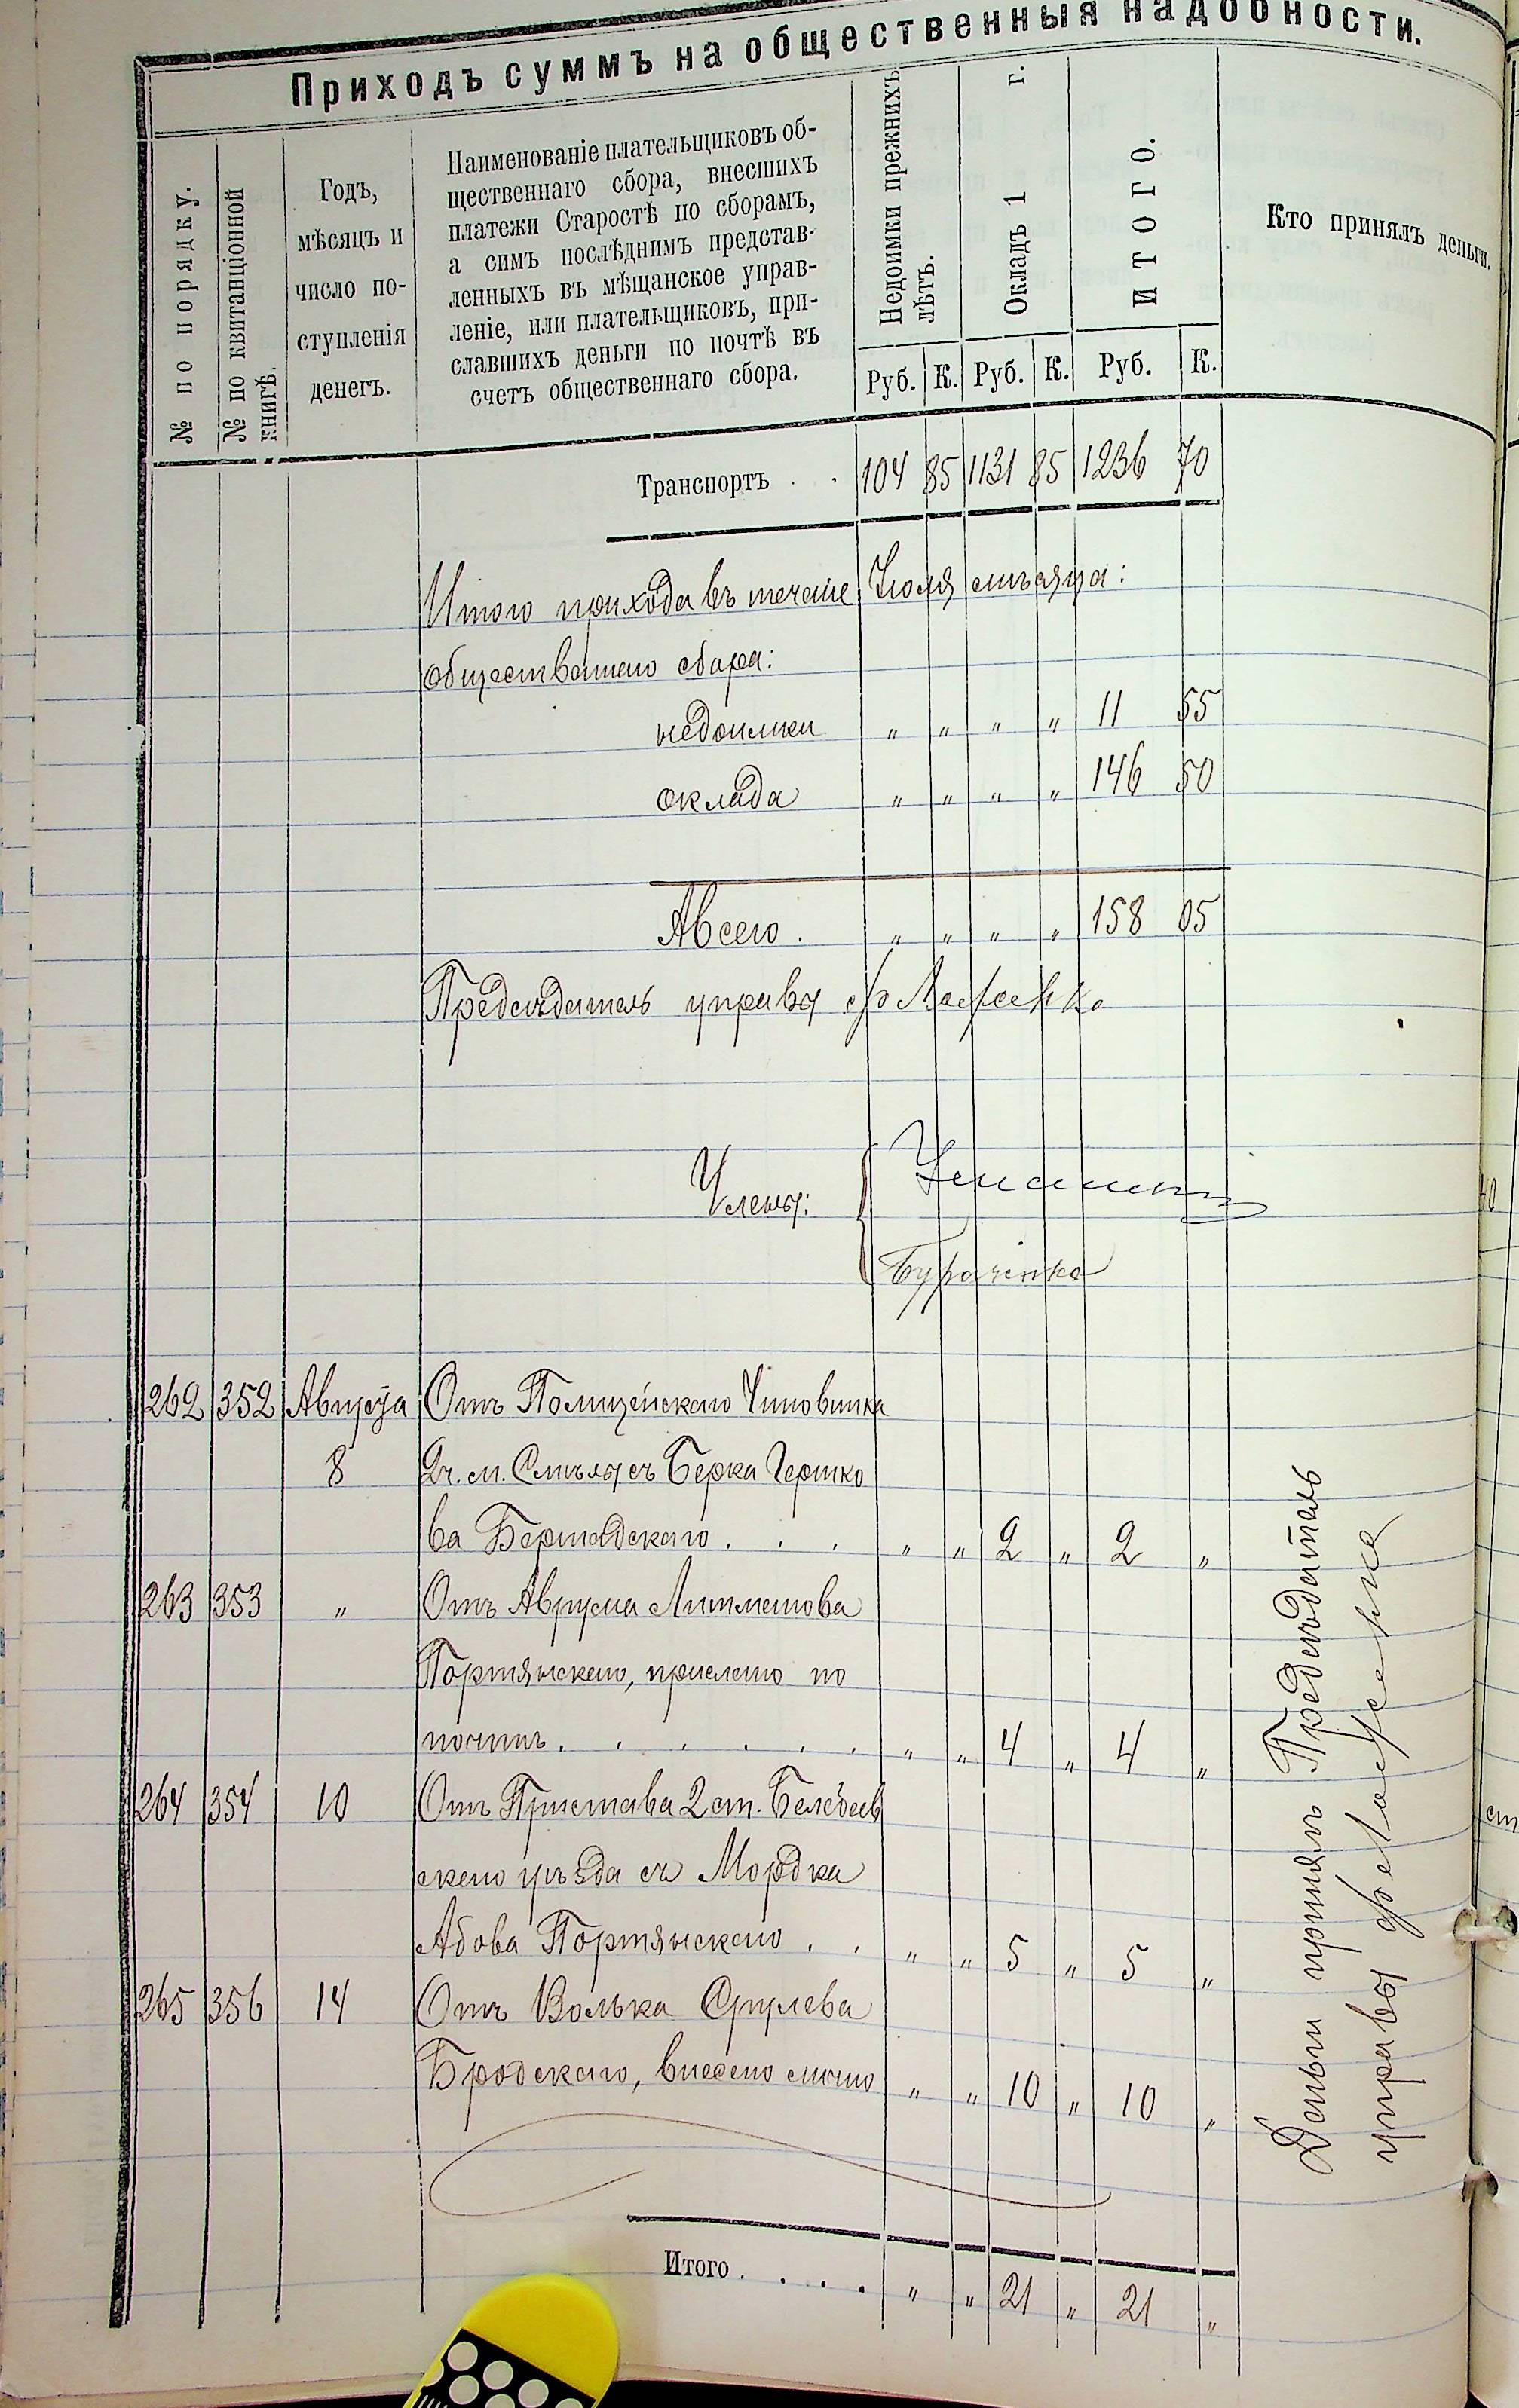 Приходъ суммъ на общественныя надобности.
№ по порядку.
№ по квитанціонной
книгѣ.
Годъ,
мѣсяцъ и
число по-
ступленія
денегъ.
Наименованіе плательщиковъ об-
щественнаго сбора, внесшихъ
платежи Старостѣ по сборамъ,
а симъ послѣднимъ представ-
ленныхъ въ мѣщанское управ-
леніе, или плательщиковъ, при-
славшихъ деньги по почтѣ въ
счетъ общественнаго сбора.
Недоимки прежнихъ
лѣтъ.
Окладъ 1 г.
ИТОГО.
Кто принялъ деньги.
Руб. К. Руб. К. Руб. К.
Транспортъ . . 104 85 1131 85 1236 70
Итого прихода въ теченіе Іюля мѣсяца:
общественнаго сбора:
недоимки " " " " 11 55
оклада " " " " 146 50
А всего. " " " " 158 05
Предсѣдатель управы
Члены:
Бураченко
262 352 Августа Отъ Полицейскаго Чиновника
8 2 ч. м. Смѣлы съ Берка Гершко
ва Бершадскаго . . . " " 2 " 2 "
263 353 " Отъ Аврума
Портянскаго, прислано по
почтѣ . . . . . . " " 4 " 4 "
264 354 10 Отъ Пристава 2 ст. Белебеев
скаго уѣзда съ Мордка
Абова Портянскаго . . " " 5 " 5 "
265 356 14 Отъ Волька Срулева
Бродскаго, внесено лично " " 10 " 10 "
Итого . . . . " " 21 " 21 "
Деньги принялъ Предсѣдатель
управы